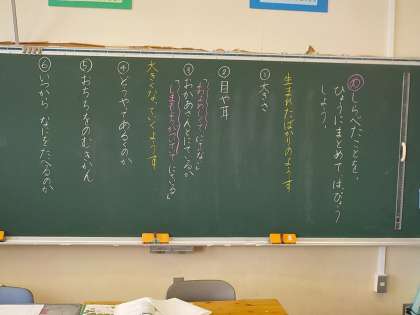 め しらべたことを、
ひょうにまとめてはっぴょう
しよう。
生まれたばかりのようす
① 大きさ
② 目や耳
③ おかあさんとにているか
大きくなっていくようす
④ どうやってあるくのか
⑤ おちちをのむきかん
⑥ いつから なにをたべるのか